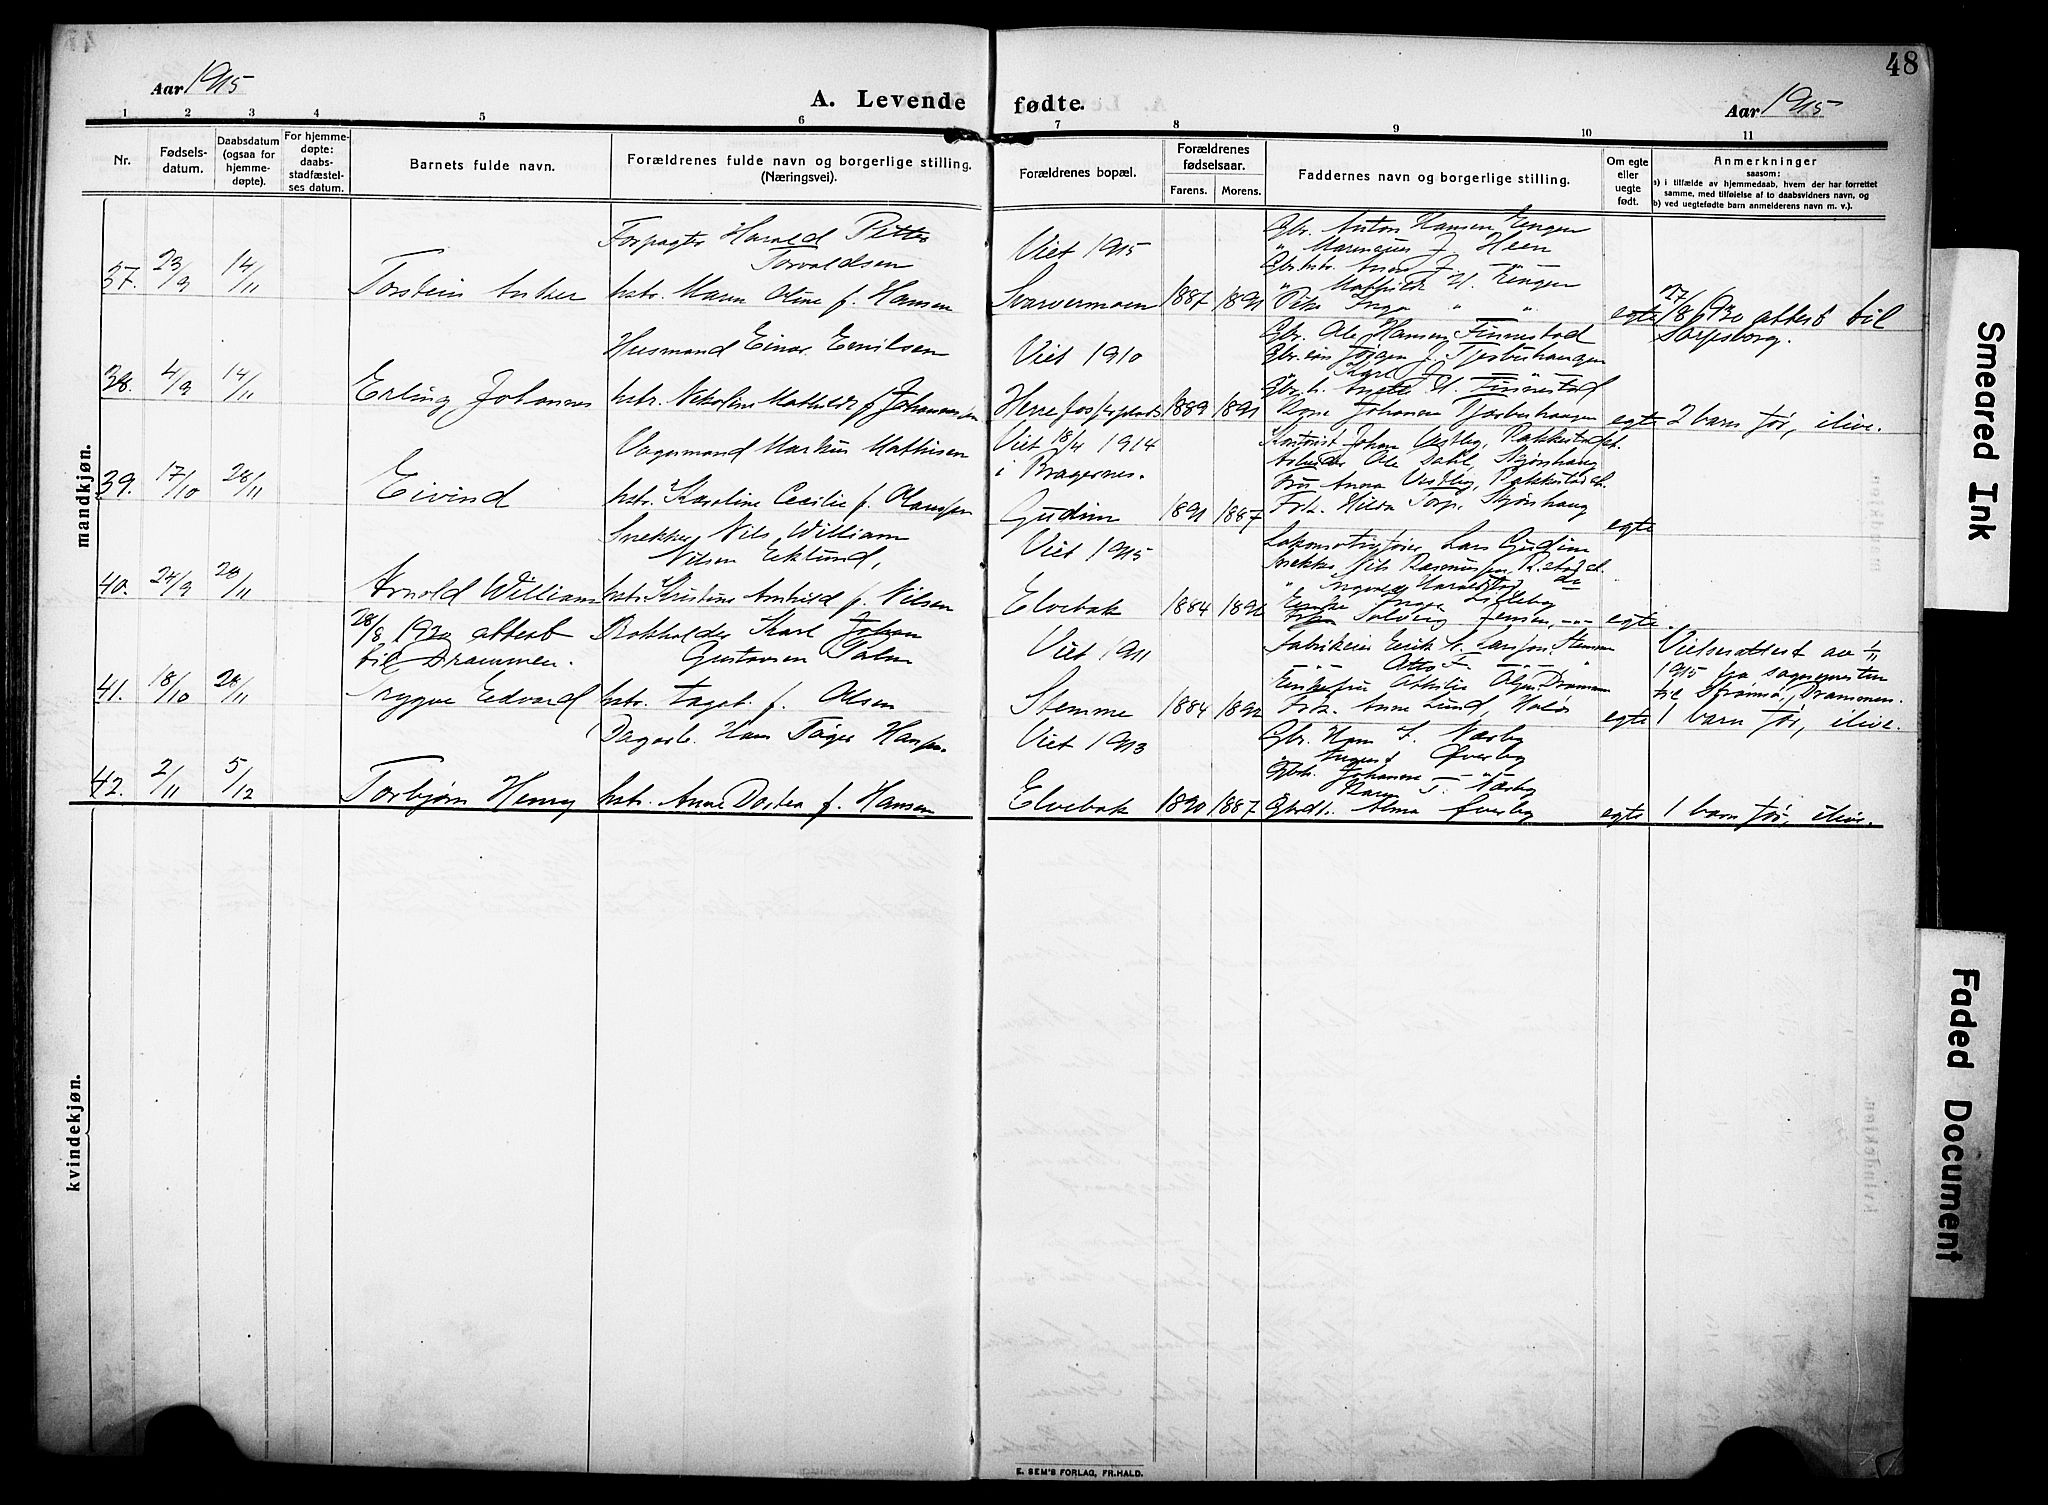 48
Aar 1915
A. Levende fødte.
Aar 1915
1 2 3 4 5 6 7 8 9 10 11
Nr.
Fødsels-
datum.
Daabsdatum
(ogsaa for
hjemme-
døpte).
For hjemme-
døpte:
daabs-
stadfæstel-
ses datum.
Barnets fulde navn.
Forældrenes fulde navn og borgerlige stilling.
(Næringsvei).
Forældrenes bopæl.
Forældrenes
fødselsaar.
Farens. Morens.
Faddernes navn og borgerlige stilling.
Om egte
eller
uegte
født.
Anmerkninger
saasom:
a) i tilfælde av hjemmedaab, hvem der har forrettet
samme, med tilføielse af to daabsvidners navn, og
b) ved uegtefødte barn anmelderens navn m. v.).
mandkjøn.
37. 23/9 14/11
Torstein Anker
Forpagter Harald Petter
Torvaldsen
hstr. Maren Otine f. Hansen
Viet 1915
Svarvermoen 1887 1891
Gbr. Anton Hansen Engen
" Marenius J. Heen
Gbr.hstr. Anne J. "
" Mathilde H. Engen
Pike Inga " "
egte
17/8 1930 attest til
Sarpsborg.
38. 4/9 14/11
Erling Johannes
Husmand Einar Emilsen
hstr. Nikoline Mathilde f. Johannessen
Viet 1910
1889 1891
Gbr. Ole Hansen Finnestad
Karl J.
Gbr. h. Anette H. Finnestad
egte
2 barn før, ilive.
39. 17/10 28/11
Eivind
Vognmand Markus Mathisen
hstr. Karoline Cecilie f. Olaussen
Viet 18/4 1914
i Bragernes.
Gudim 1891 1887
Kontorist Johan Vestby, Rakkestad st.
Arbeider Ole Dahl, Skjønhaug
Fru Anna Vestby, Rakkestad st.
Frk. Hilda Torp, Skjønhaug
egte
40. 24/9 28/11
Arnold William
Snekker Nils William
Nilsen Eklund,
hstr. Kristine Arnhild f. Nilsen
Viet 1915
Elvebak 1884 1891
Lokomotivfører Lars Gudim
Snekker Nils Rasmussen R.stad st.
egte.
28/8 1920 attest
til Drammen.
41. 18/10 28/11
Trygve Edvard
Karl Johan
Gustavsen Palm
hstr. Dagot. f. Olsen
Viet 1911
Stemme 1884 1892
Fabrikeier Erik A. Larsen, Stemme
Otto F.
Frk. Anne Lund,
egte
Vielsesattest av 1/11
1915 fra sognepresten
til Strømsø, Drammen.
1 barn før, ilive.
42. 2/11 5/12
Torbjørn Henry
Dagarb. Hans Tøger Hansen
hstr. Anne Dortea f. Hansen
Viet 1913
Elvebak 1890 1887
Gbr. Hans T. Nærby
August Øverby
Gbr.hstr. Johanne T. Nærby
Karen T. Nærby
Gbrdt. Alma Øverby
egte
1 barn før, ilive.
kvindekjøn.
E. SEM'S FORLAG, FR.HALD.
Smeared Ink
Faded Document